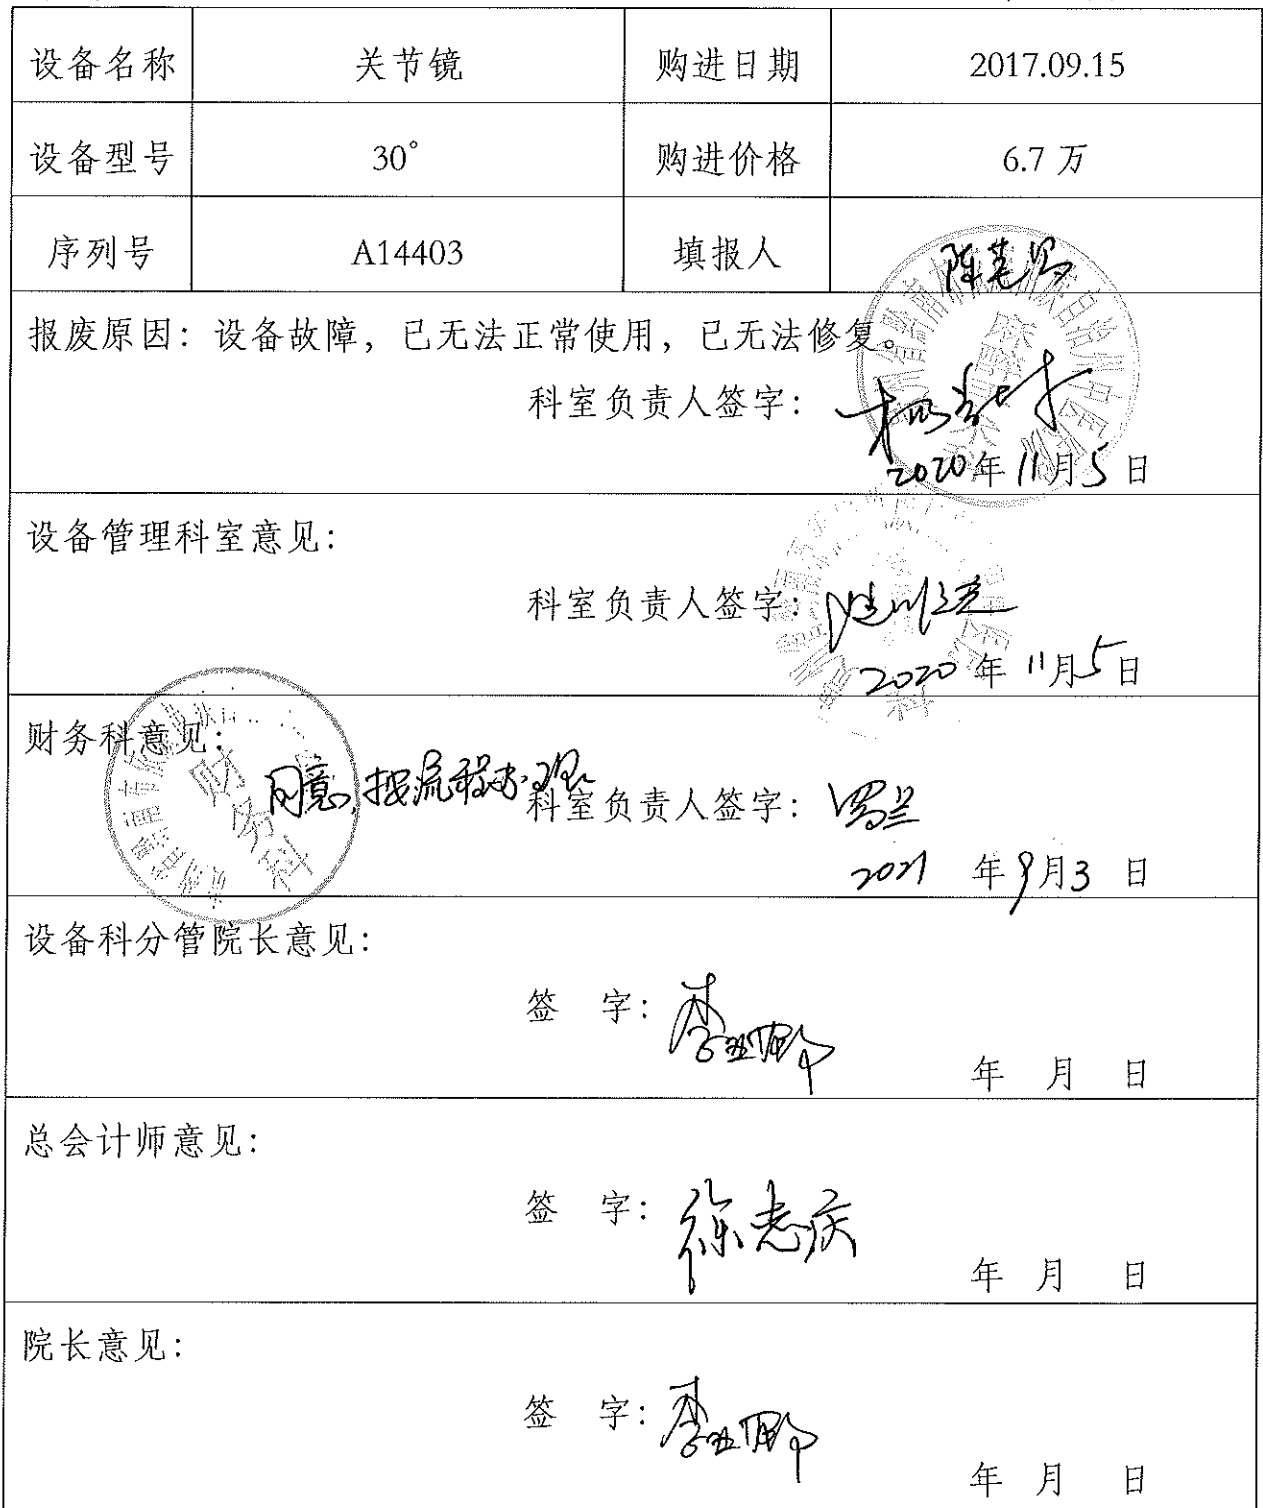 设备名称 关节镜 购进日期 2017.09.15
设备型号 30° 购进价格 6.7 万
序列号 A14403 填报人
报废原因：设备故障，已无法正常使用，已无法修复。
科室负责人签字：
2020年11月5日
设备管理科室意见：
科室负责人签字：
2020年11月5日
财务科意见：
财务科
同意，按流程办理
科室负责人签字：罗兰
2021 年9月3 日
设备科分管院长意见：
签 字：
年 月 日
总会计师意见：
签 字：徐志庆
年 月 日
院长意见：
签 字：
年 月 日